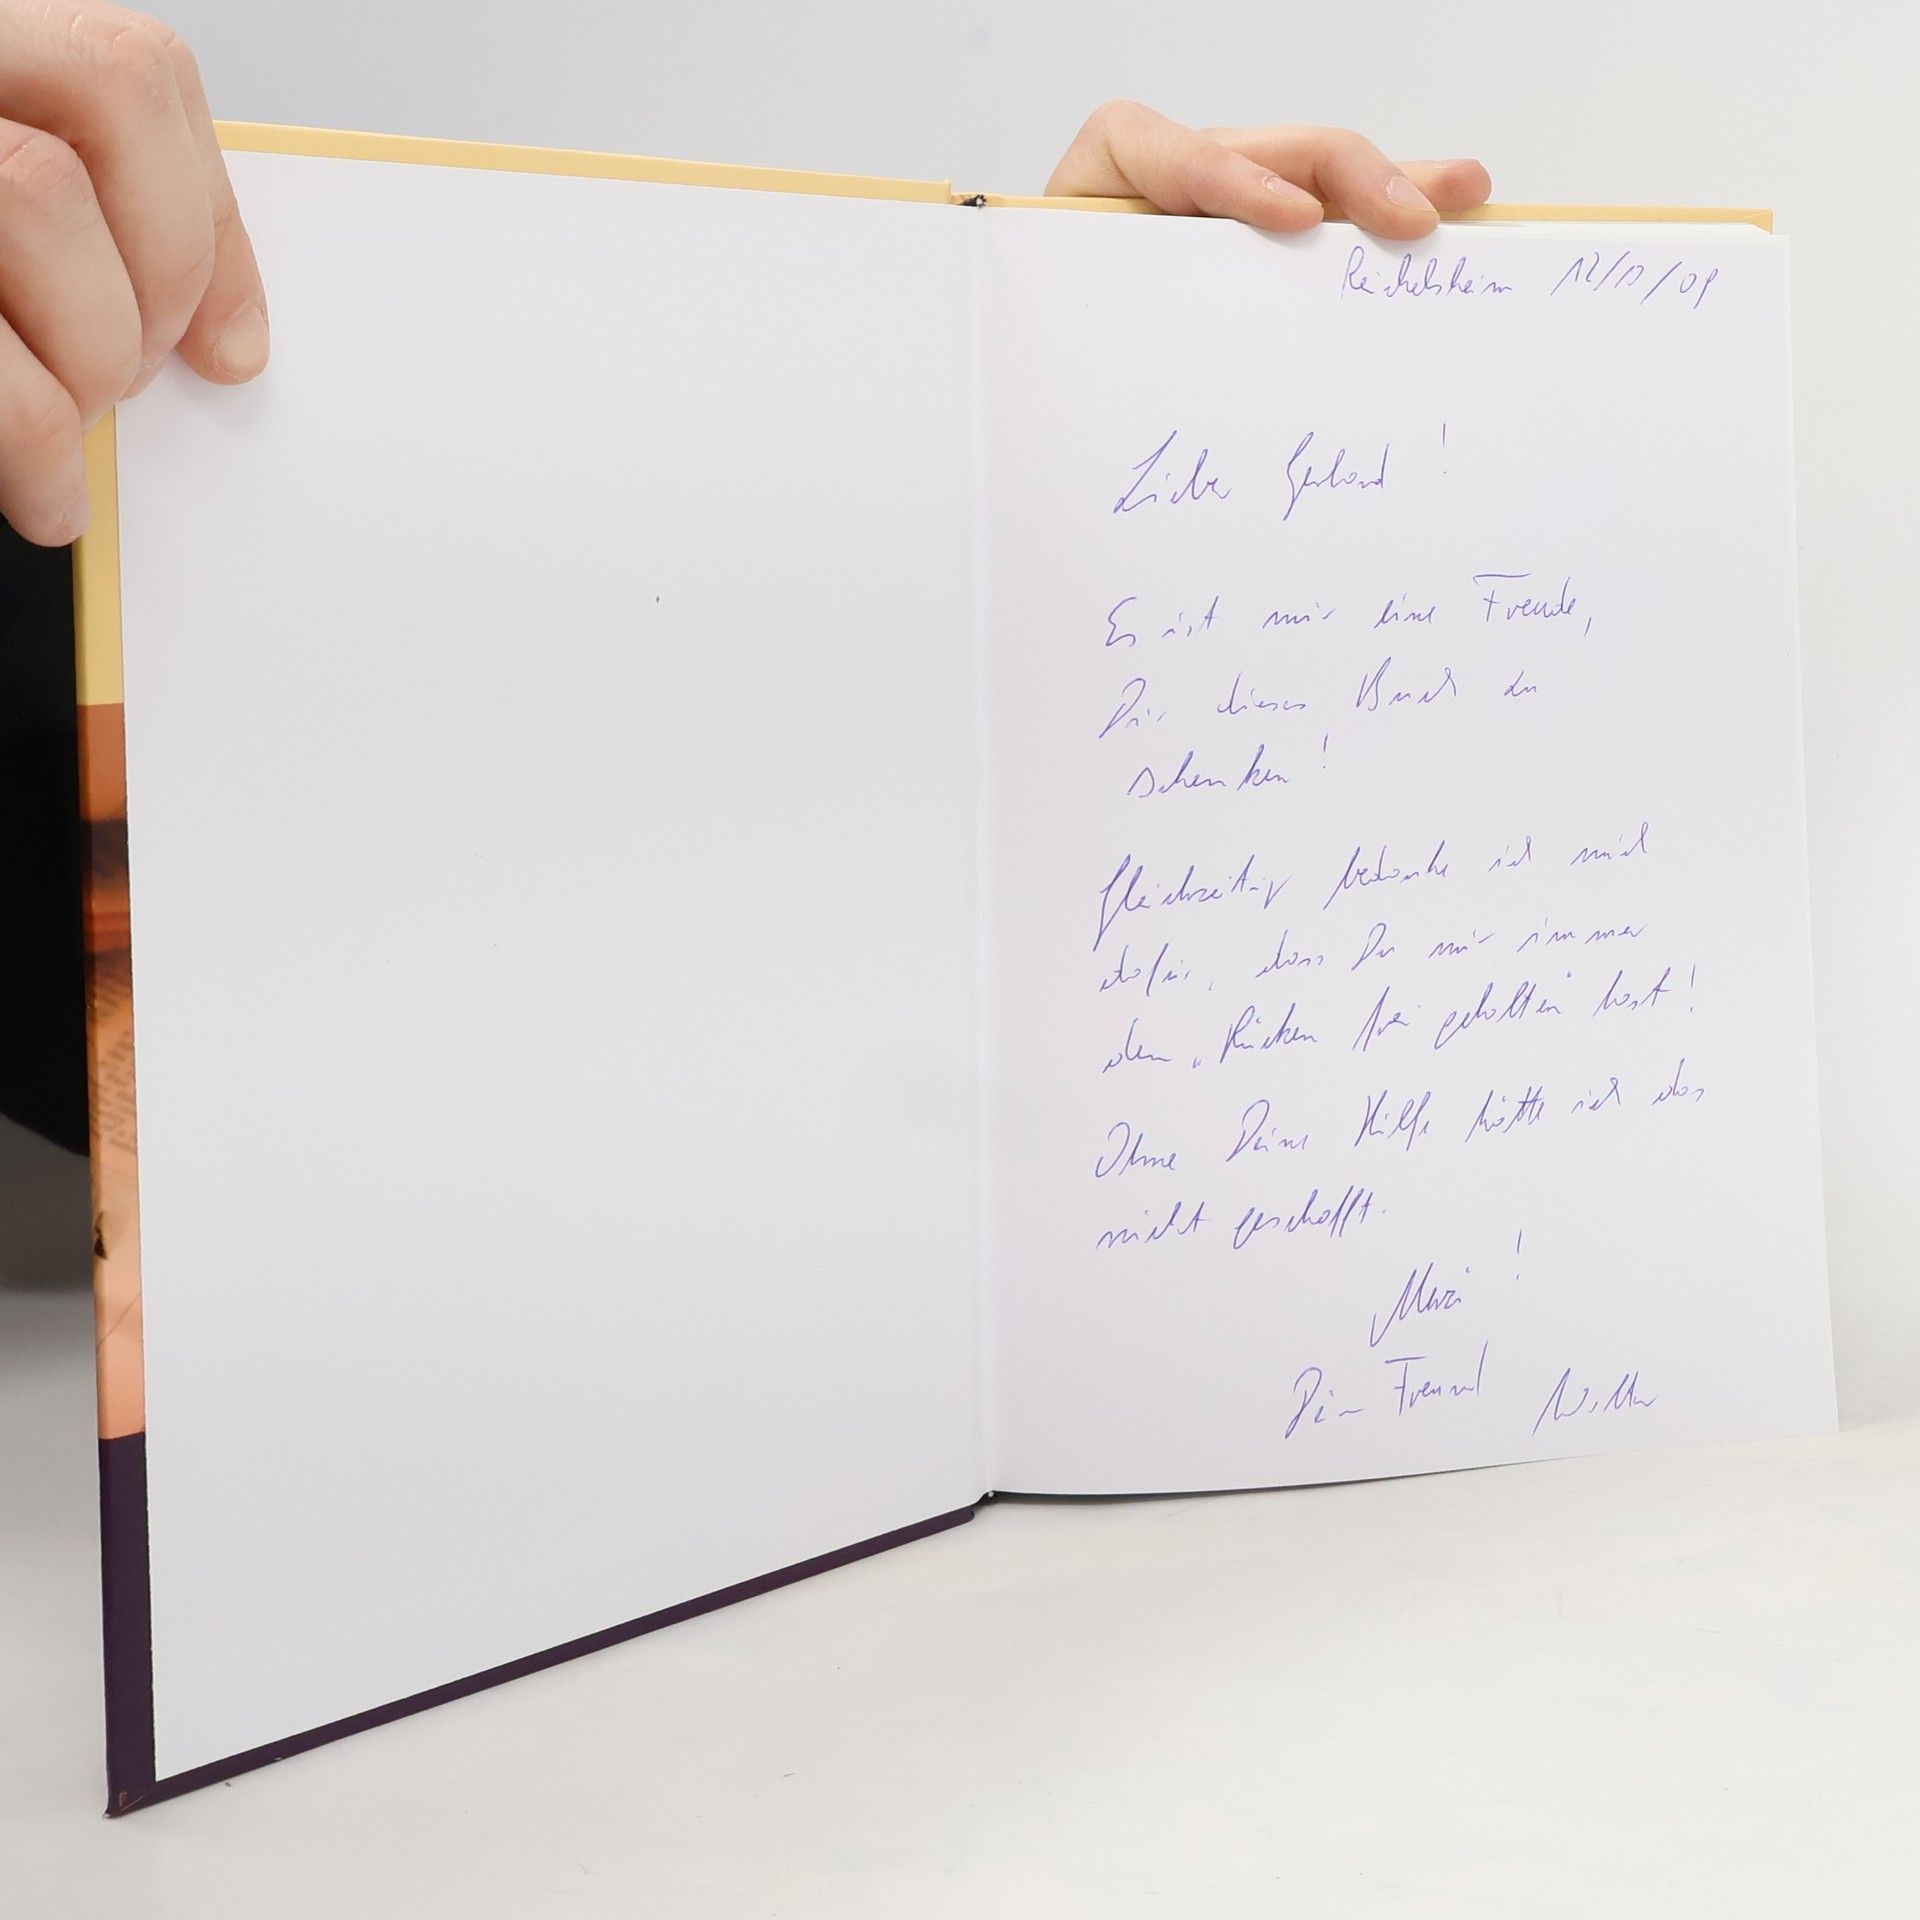 Reichelsheim 12/13/09
Lieber Gerhard!
Es ist mir eine Freude,
Dir dieses Buch zu
schenken!
Gleichzeitig bedanke ich mich
dafür, dass Du mir immer
den „Rücken frei gehalten" hast!
Ohne Deine Hilfe hätte ich das
nicht geschafft.
Merci!
Dein Freund